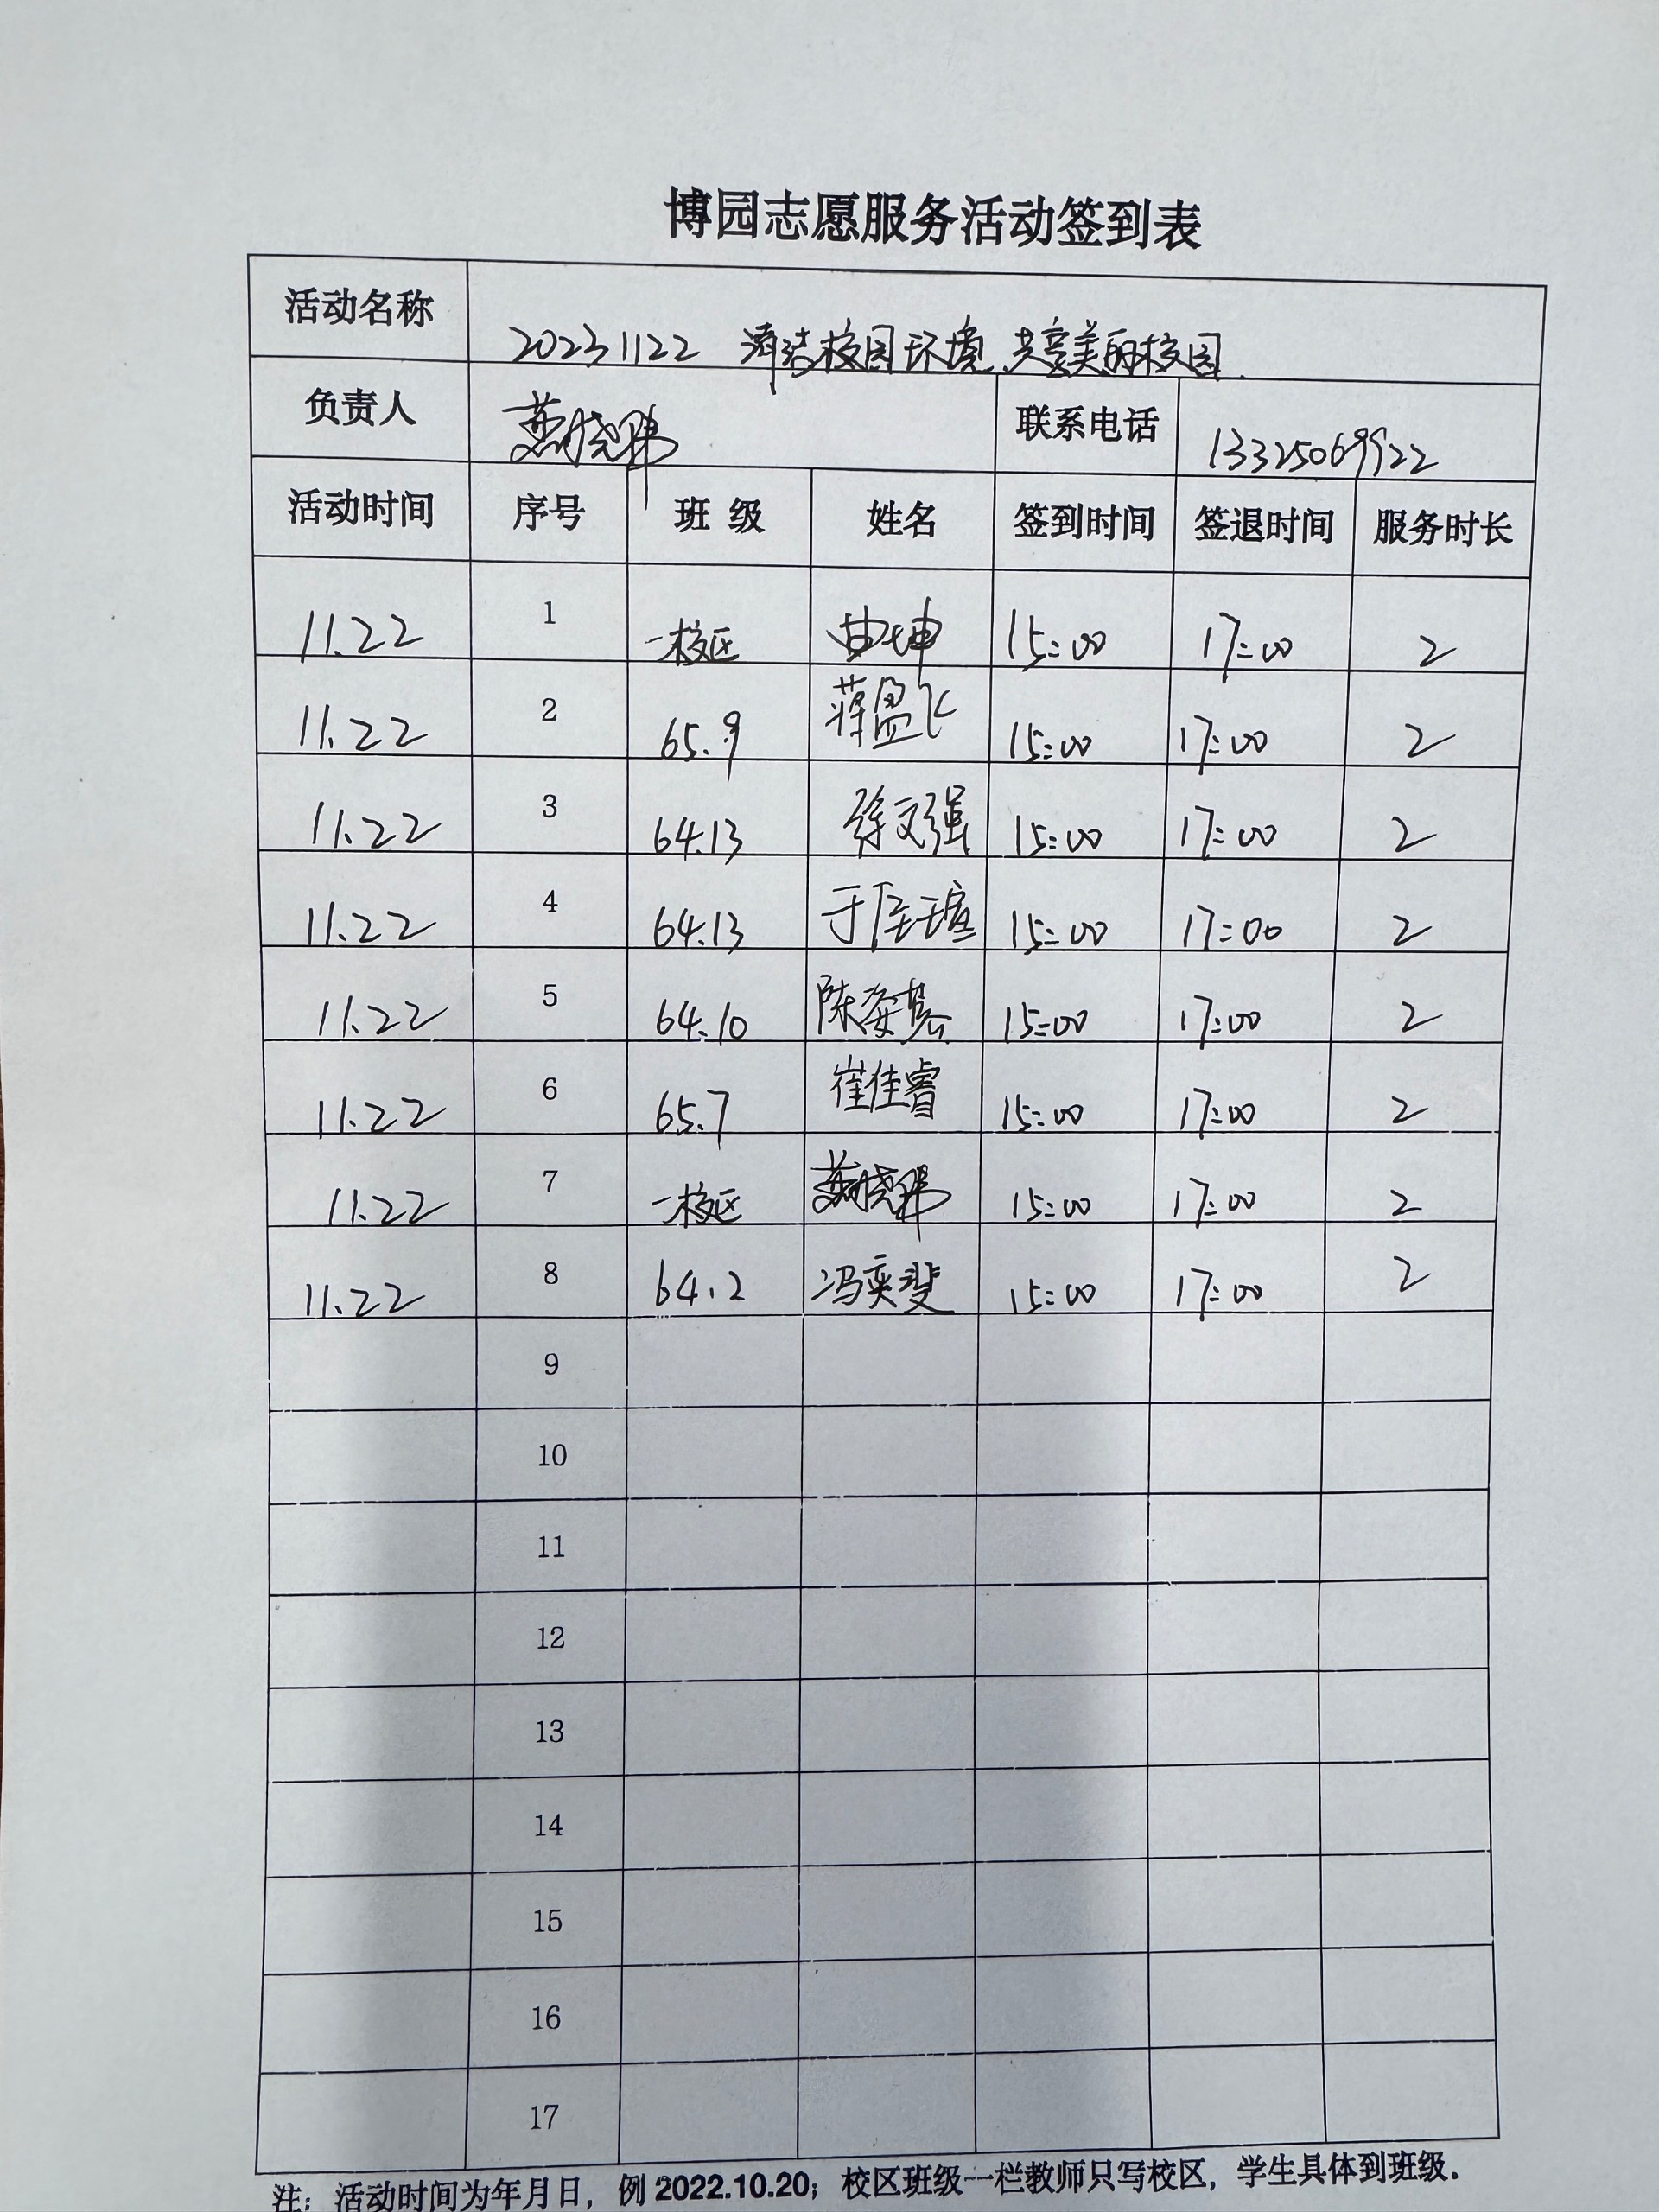 博园志愿服务活动签到表
活动名称 20231122 清洁校园环境,共享美丽校园.
负责人 燕晓玮 联系电话 13325069922
活动时间 序号 班 级 姓名 签到时间 签退时间 服务时长
11.22 1 一校区 曲坤 15:00 17:00 2
11.22 2 65.9 蒋盈飞 15:00 17:00 2
11.22 3 64.13 徐文强 15:00 17:00 2
11.22 4 64.13 于 15:00 17:00 2
11.22 5 64.10 陈姿 15:00 17:00 2
11.22 6 65.7 崔佳睿 15:00 17:00 2
11.22 7 一校区 燕晓玮 15:00 17:00 2
11.22 8 64.2 冯奕斐 15:00 17:00 2
9
10
11
12
13
14
15
16
17
注：活动时间为年月日，例 2022.10.20；校区班级一栏教师只写校区，学生具体到班级.